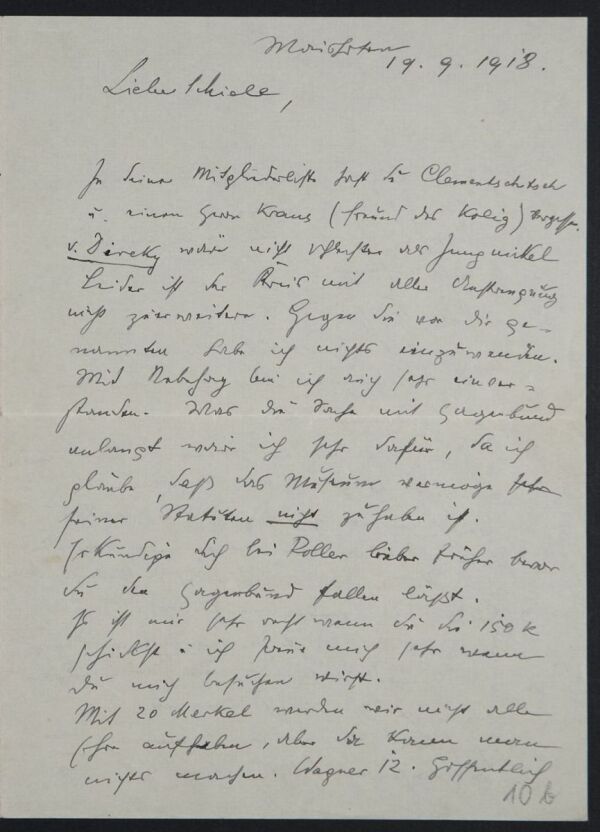 19. 9. 1918.
Lieber Schiele,
In Deiner Mitgliederliste hast Du Clementschitsch
u. einen Herrn Kraus (Freund des Kolig) vergessen.
v. Direky wäre nicht schlechter als Jungnickel
Leider ist der Kreis mit aller Anstrengung
nicht zu erweitern. Gegen die von Dir ge-
nannten habe ich nichts einzuwenden.
Mit Nebehay bin ich auch sehr einver=
standen. Was die Sache mit Hagenbund
anlangt wäre ich sehr dafür, da ich
glaube, daß das Museum vermöge
seiner Statuten nicht zu haben ist.
Erkundige Dich bei Roller lieber früher bevor
Du den Hagenbund fallen läßt.
Es ist mir sehr recht wenn Du die 150 K
schickst u ich freue mich sehr wenn
Du mich besuchen wirst.
Mit 20 Merkel werden wir nicht alle
aufheben, aber da kann man
nichts machen. Wagner 12. Hoffentlich
10 b